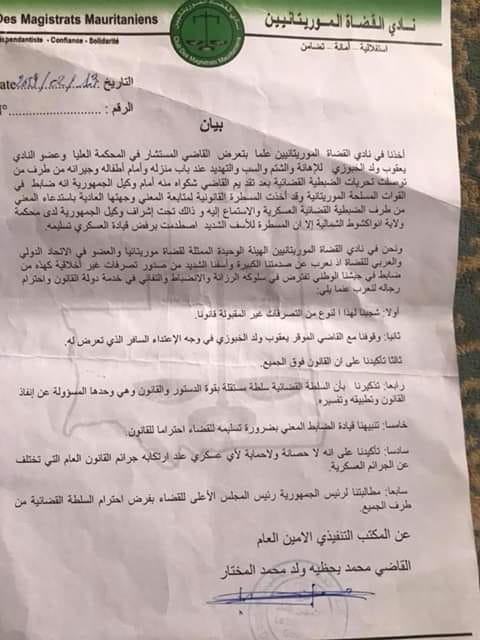 Des Magistrats Mauritaniens
نادي القضاة الموريتانيين
épendantiste - Confiance - Solidarité
استقلالية - أمانة - تضامن
Club des Magistrats Mauritaniens
التاريخ
الرقم :
بيان
أخذنا في نادي القضاة الموريتانيين علما بتعرض القاضي المستشار في المحكمة العليا وعضو النادي
يعقوب ولد الخبوزي للإهانة والشتم والسب والتهديد عند باب منزله وأمام أطفاله وجيرانه من طرف من
توصلت تحريات الضبطية القضائية بعد تقديم القاضي شكواه منه أمام وكيل الجمهورية انه ضابط في
القوات المسلحة الموريتانية وقد أخذت المسطرة القانونية لمتابعة المعني وجهتها العادية باستدعاء المعني
من طرف الضبطية القضائية العسكرية والاستماع إليه و ذالك تحت إشراف وكيل الجمهورية لدى محكمة
ولاية انواكشوط الشمالية إلا إن المسطرة للأسف الشديد اصطدمت برفض قيادة العسكري تسليمه.
ونحن في نادي القضاة الموريتانيين الهيئة الوحيدة الممثلة لقضاة موريتانيا والعضو في الاتحاد الدولي
والعربي للقضاة اذ نعرب عن صدمتنا الكبيرة وأسفنا الشديد من صدور تصرفات غير أخلاقية كهذه من
ضابط في جيشنا الوطني تفترض في سلوكه الرزانة والانضباط والتفاني في خدمة دولة القانون واحترام
رجاله لنعرب عنما يلي:
أولا: شجبنا لهذا النوع من التصرفات غير المقبولة قانونا.
ثانيا: وقوفنا مع القاضي الموقر يعقوب ولد الخبوزي في وجه الإعتداء السافر الذي تعرض له.
ثالثا تأكيدنا على ان القانون فوق الجميع.
رابعا: تذكيرنا بأن السلطة القضائية سلطة مستقلة بقوة الدستور والقانون وهي وحدها المسؤولة عن إنفاذ
القانون وتطبيقه وتفسيره
خامسا: تنبيهنا قيادة الضابط المعني بضرورة تسليمه للقضاء احتراما للقانون.
سادسا: تأكيدنا على انه لا حصانة ولاحماية لأي عسكري عند ارتكابه جرائم القانون العام التي تختلف
عن الجرائم العسكرية.
سابعا: مطالبتنا لرئيس الجمهورية رئيس المجلس الأعلى للقضاء بفرض احترام السلطة القضائية من
طرف الجميع.
عن المكتب التنفيذي الامين العام
القاضي محمد يحظيه ولد محمد المختار